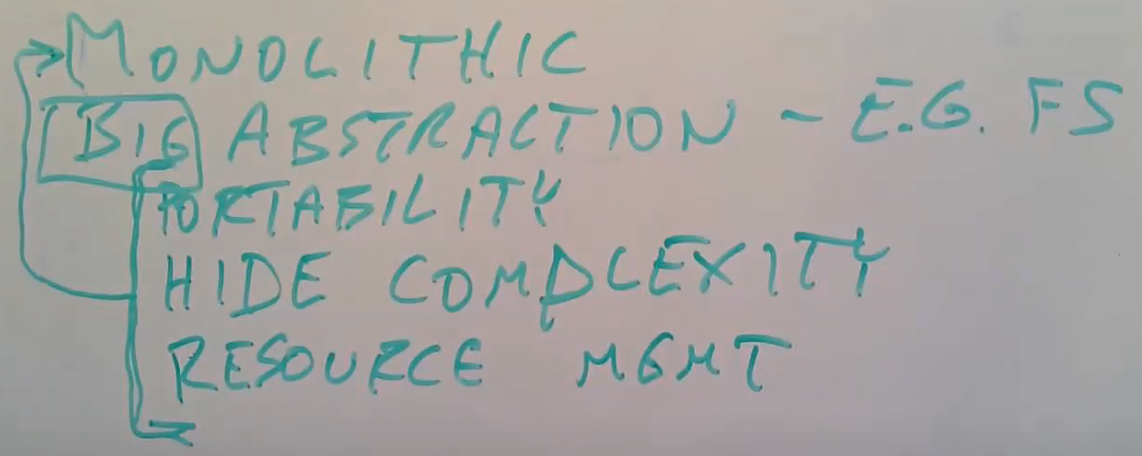 MONOLITHIC
BIG ABSTRACTION - E.G. FS
PORTABILITY
HIDE COMPLEXITY
RESOURCE MGMT